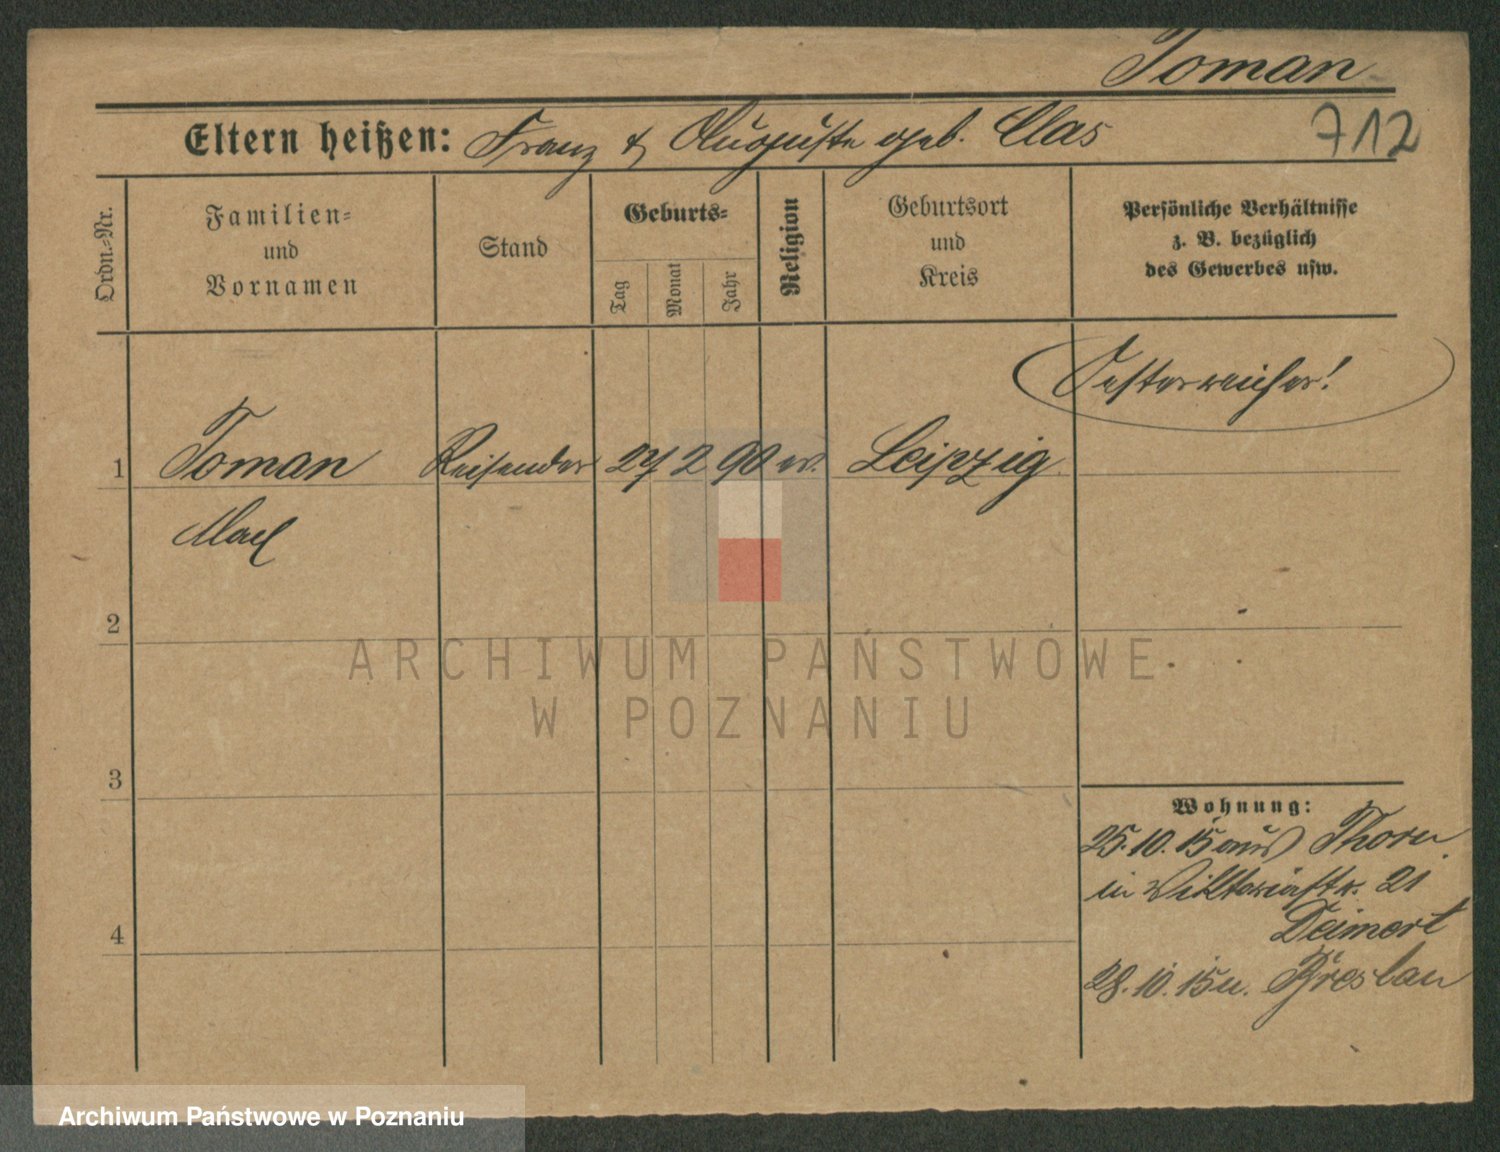 Toman
712
Eltern heißen: Franz & Auguste geb. Clas
Ordn.-Nr.
Familien-
und
Vornamen
Stand
Geburts-
Tag
Monat
Jahr
Religion
Geburtsort
und
Kreis
Persönliche Verhältnisse
z. B. bezüglich
des Gewerbes usw.
Oesterreicher!
1 Toman Reisender 27 2 90 ev. Leipzig
2
3
4
Wohnung:
25.10.15 aus Thorn
in Viktoriastr. 21
Deimert
28.10.15 n. Breslau
ARCHIWUM PAŃSTWOWE
W POZNANIU
Archiwum Państwowe w Poznaniu